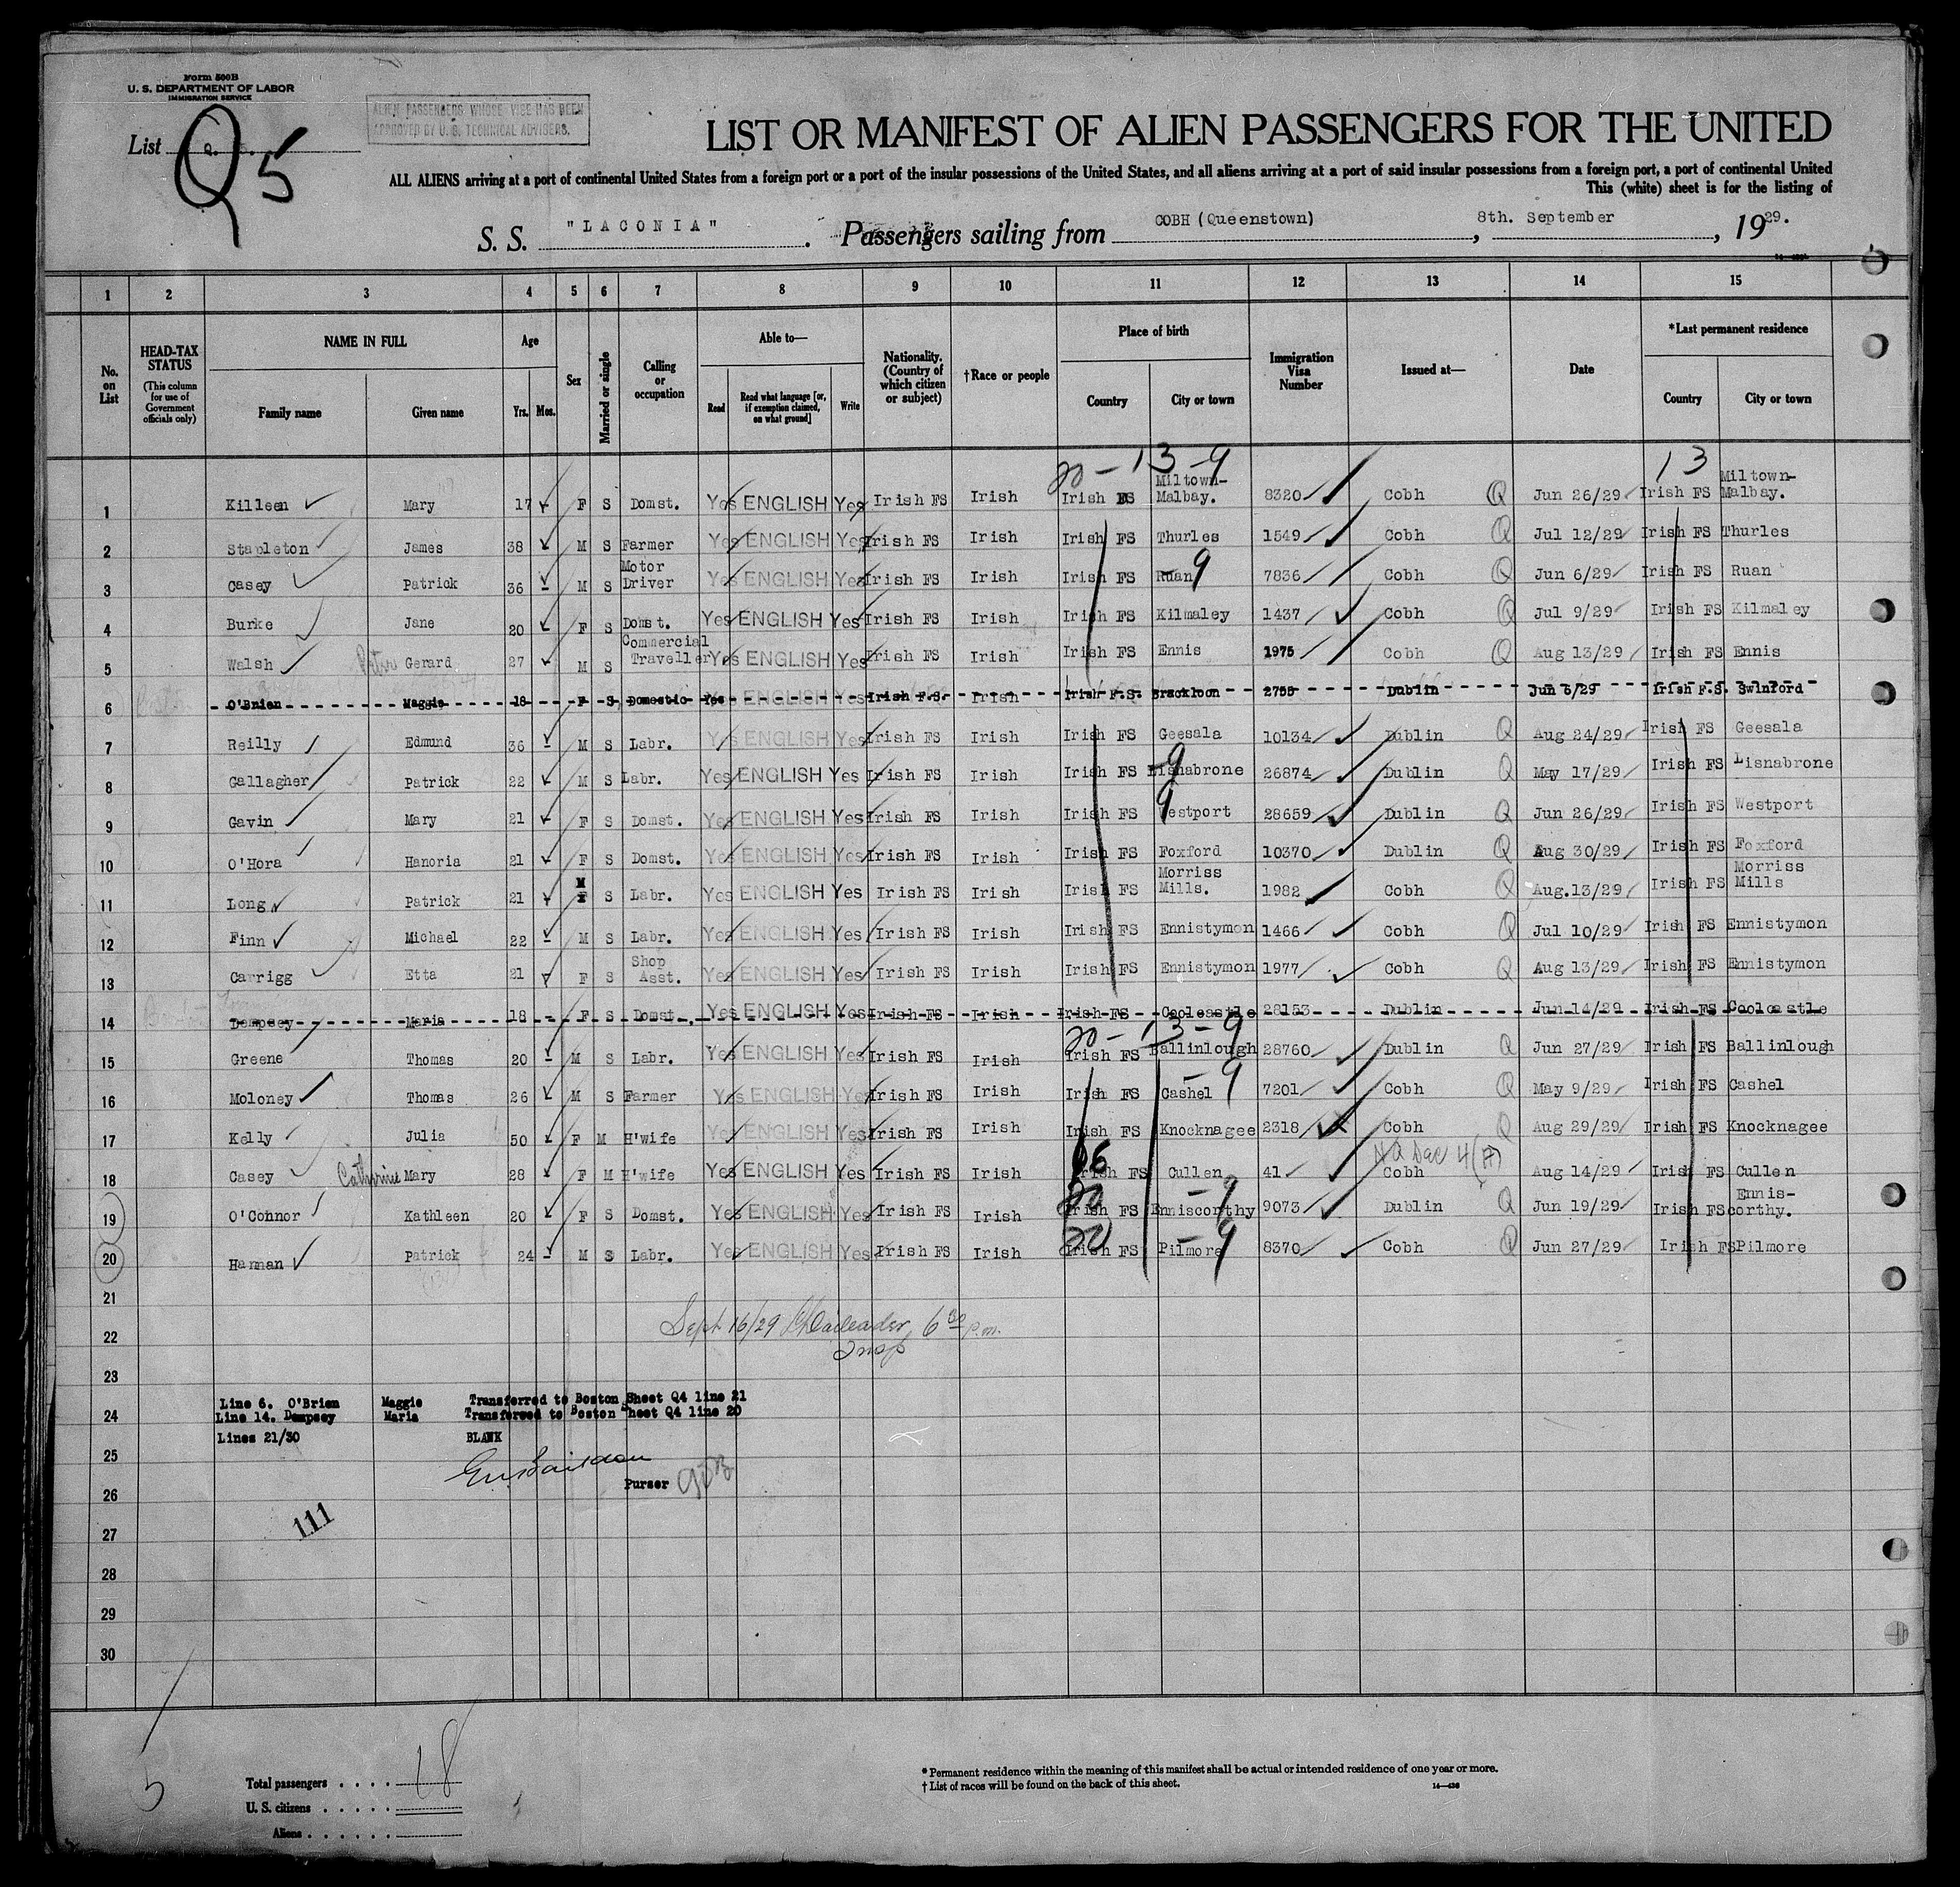 Form 500B
U. S. DEPARTMENT OF LABOR
IMMIGRATION SERVICE
ALIEN PASSENGERS WHOSE VISE HAS BEEN
APPROVED BY U. S. TECHNICAL ADVISERS.
List Q 5
LIST OR MANIFEST OF ALIEN PASSENGERS FOR THE UNITED
ALL ALIENS arriving at a port of continental United States from a foreign port or a port of the insular possessions of the United States, and all aliens arriving at a port of said insular possessions from a foreign port, a port of continental United
This (white) sheet is for the listing of
S. S. "LACONIA" . Passengers sailing from COBH (Queenstown) , 8th. September , 1929.
1 2 3 4 5 6 7 8 9 10 11 12 13 14 15
No. on List
HEAD-TAX STATUS
(This column for use of Government officials only)
NAME IN FULL
Family name Given name
Age
Yrs. Mos.
Sex
Married or single
Calling or occupation
Able to—
Read Read what language [or, if exemption claimed, on what ground] Write
Nationality. (Country of which citizen or subject)
†Race or people
Place of birth
Country City or town
Immigration Visa Number
Issued at—
Date
*Last permanent residence
Country City or town
20 - 13 - 9 13
1 Killeen Mary 17 F S Domst. Yes ENGLISH Yes Irish FS Irish Irish FS Miltown-Malbay. 8320 Cobh Q Jun 26/29 Irish FS Miltown-Malbay.
2 Stapleton James 38 M S Farmer Yes ENGLISH Yes Irish FS Irish Irish FS Thurles 1549 Cobh Q Jul 12/29 Irish FS Thurles
3 Casey Patrick 36 M S Motor Driver Yes ENGLISH Yes Irish FS Irish Irish FS Ruan 9 7836 Cobh Q Jun 6/29 Irish FS Ruan
4 Burke Jane 20 F S Domst. Yes ENGLISH Yes Irish FS Irish Irish FS Kilmaley 1437 Cobh Q Jul 9/29 Irish FS Kilmaley
5 Walsh Peter Gerard 27 M S Commercial Traveller Yes ENGLISH Yes Irish FS Irish Irish FS Ennis 1975 Cobh Q Aug 13/29 Irish FS Ennis
6 O'Brien Maggie 18 F S Domestic Yes ENGLISH Yes Irish F.S. Irish Irish F.S. Brackloon 2755 Dublin Jun 6/29 Irish F.S. Swinford
7 Reilly Edmund 36 M S Labr. Yes ENGLISH Yes Irish FS Irish Irish FS Geesala 10134 Dublin Q Aug 24/29 Irish FS Geesala
8 Gallagher Patrick 22 M S Labr. Yes ENGLISH Yes Irish FS Irish Irish FS Lisnabrone 9 26874 Dublin Q May 17/29 Irish FS Lisnabrone
9 Gavin Mary 21 F S Domst. Yes ENGLISH Yes Irish FS Irish Irish FS Westport 9 28659 Dublin Q Jun 26/29 Irish FS Westport
10 O'Hora Hanoria 21 F S Domst. Yes ENGLISH Yes Irish FS Irish Irish FS Foxford 10370 Dublin Q Aug 30/29 Irish FS Foxford
11 Long Patrick 21 M S Labr. Yes ENGLISH Yes Irish FS Irish Irish FS Morriss Mills. 1982 Cobh Q Aug.13/29 Irish FS Morriss Mills
12 Finn Michael 22 M S Labr. Yes ENGLISH Yes Irish FS Irish Irish FS Ennistymon 1466 Cobh Q Jul 10/29 Irish FS Ennistymon
13 Carrigg Etta 21 F S Shop Asst. Yes ENGLISH Yes Irish FS Irish Irish FS Ennistymon 1977 Cobh Q Aug 13/29 Irish FS Ennistymon
14 Dempsey Maria 18 F S Domst. Yes ENGLISH Yes Irish FS Irish Irish FS Coolcastle 28153 Dublin Jun 14/29 Irish FS Coolcastle
20 - 13 - 9
15 Greene Thomas 20 M S Labr. Yes ENGLISH Yes Irish FS Irish Irish FS Ballinlough 28760 Dublin Q Jun 27/29 Irish FS Ballinlough
16 Moloney Thomas 26 M S Farmer Yes ENGLISH Yes Irish FS Irish Irish FS Cashel - 9 7201 Cobh Q May 9/29 Irish FS Cashel
17 Kelly Julia 50 F M H'wife Yes ENGLISH Yes Irish FS Irish Irish FS Knocknagee 2318 Cobh Q Aug 29/29 Irish FS Knocknagee
18 Casey Catherine Mary 28 F M H'wife Yes ENGLISH Yes Irish FS Irish Irish FS Cullen 41 N Q Sec 4 (A) Cobh Aug 14/29 Irish FS Cullen
19 O'Connor Kathleen 20 F S Domst. Yes ENGLISH Yes Irish FS Irish 20 Irish FS Enniscorthy - 9 9073 Dublin Q Jun 19/29 Irish FS Ennis-corthy.
20 Hannan Patrick 24 M S Labr. Yes ENGLISH Yes Irish FS Irish 20 Irish FS Pilmore - 9 8370 Cobh Q Jun 27/29 Irish FS Pilmore
21
22 Sept 16/29 6 30 p.m.
Insp
23
Line 6. O'Brien Maggie Transferred to Boston Sheet Q4 line 21
24 Line 14. Dempsey Maria Transferred to Boston Sheet Q4 line 20
Lines 21/30 BLANK
25
Purser
26
111
27
28
29
30
Total passengers . . . . 18
U. S. citizens . . . . .
Aliens . . . . . .
5
* Permanent residence within the meaning of this manifest shall be actual or intended residence of one year or more.
† List of races will be found on the back of this sheet.
14—436